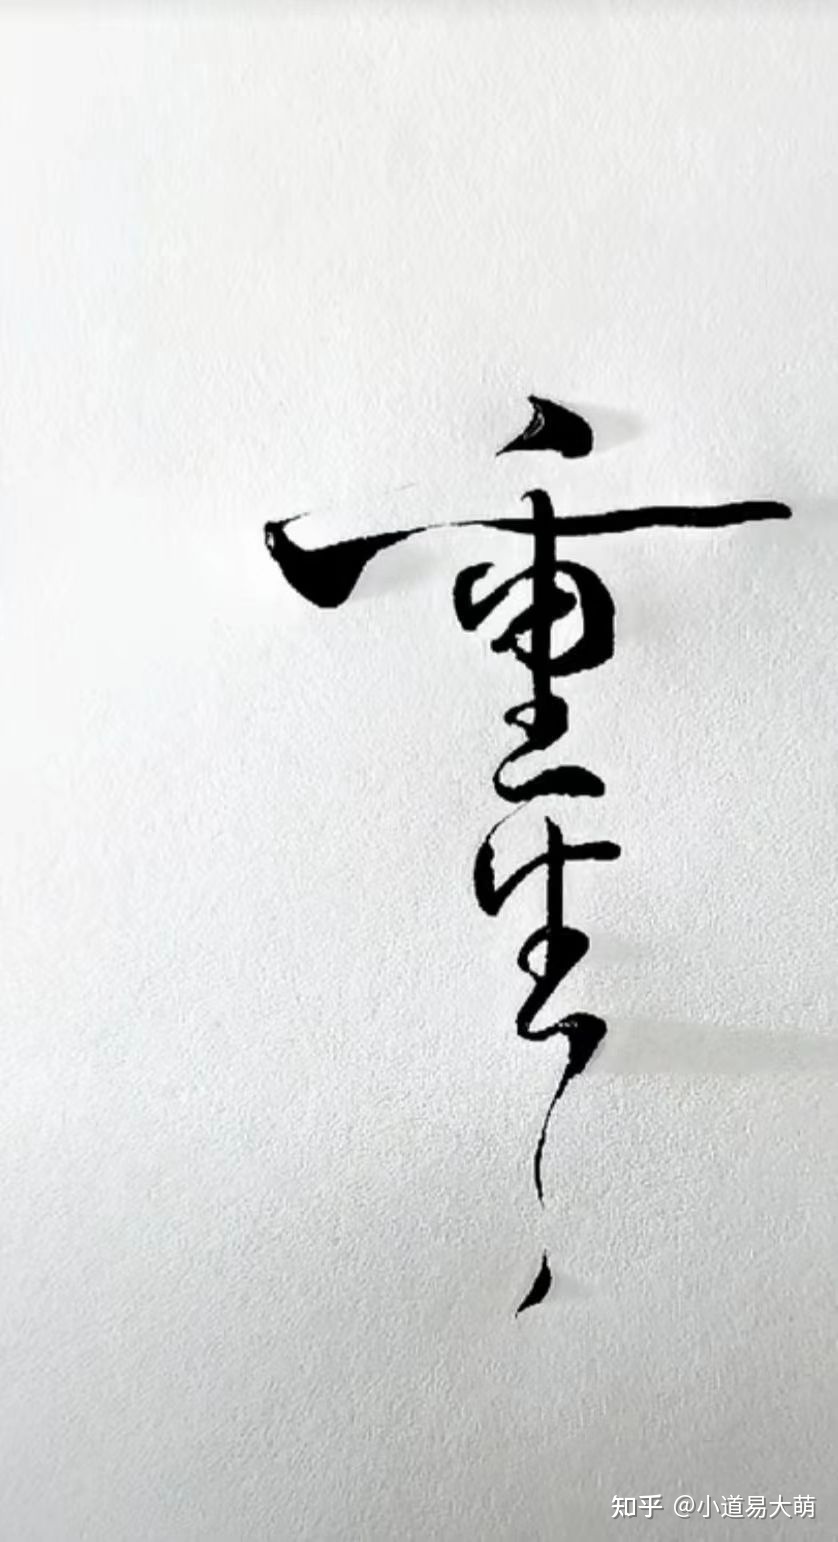 重生
知乎 @小道易大萌